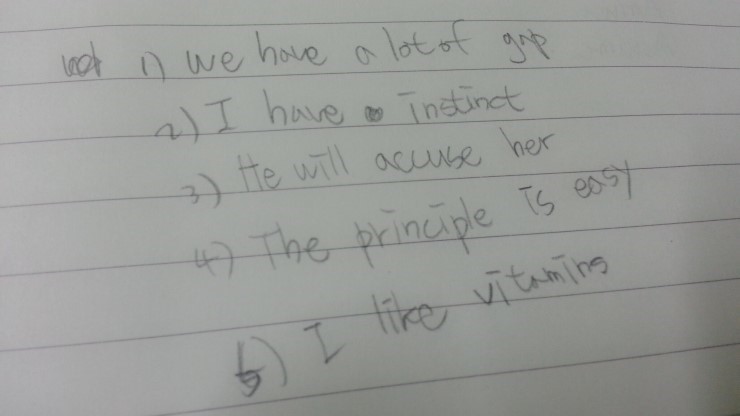 1) we have a lot of gap
2) I have instinct
3) He will accuse her
4) The principle is easy
5) I like vitamins